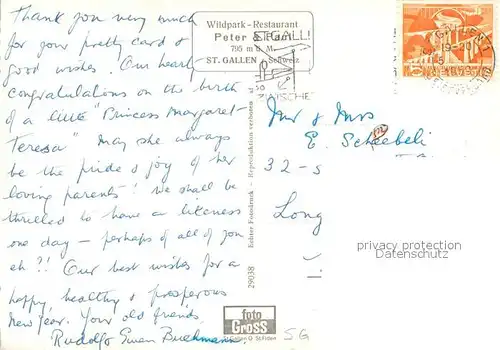 Thank you very much
for your pretty card &
good wishes. Our hearty
congratulations on the birth
of a little "Princess Margaret
Teresa" May she always
be the pride & joy of her
loving parents! We shall be
thrilled to have a likeness
one day – perhaps of all of you
eh?!! Our best wishes for a
happy, healthy & prosperous
New Year. Your old friends,
Rudolfo Ewen
Wildpark-Restaurant
Peter & Paul
795 m ü. M.
ST. GALLEN / Schweiz
ST.GALL
HELVETIA
19-20
Mr & Mrs
E. Scheebeli
32-5
Long
Echter Fotodruck - Reproduktion verboten
29038
foto
Gross
St.Fiden
SG
privacy protection
Datenschutz